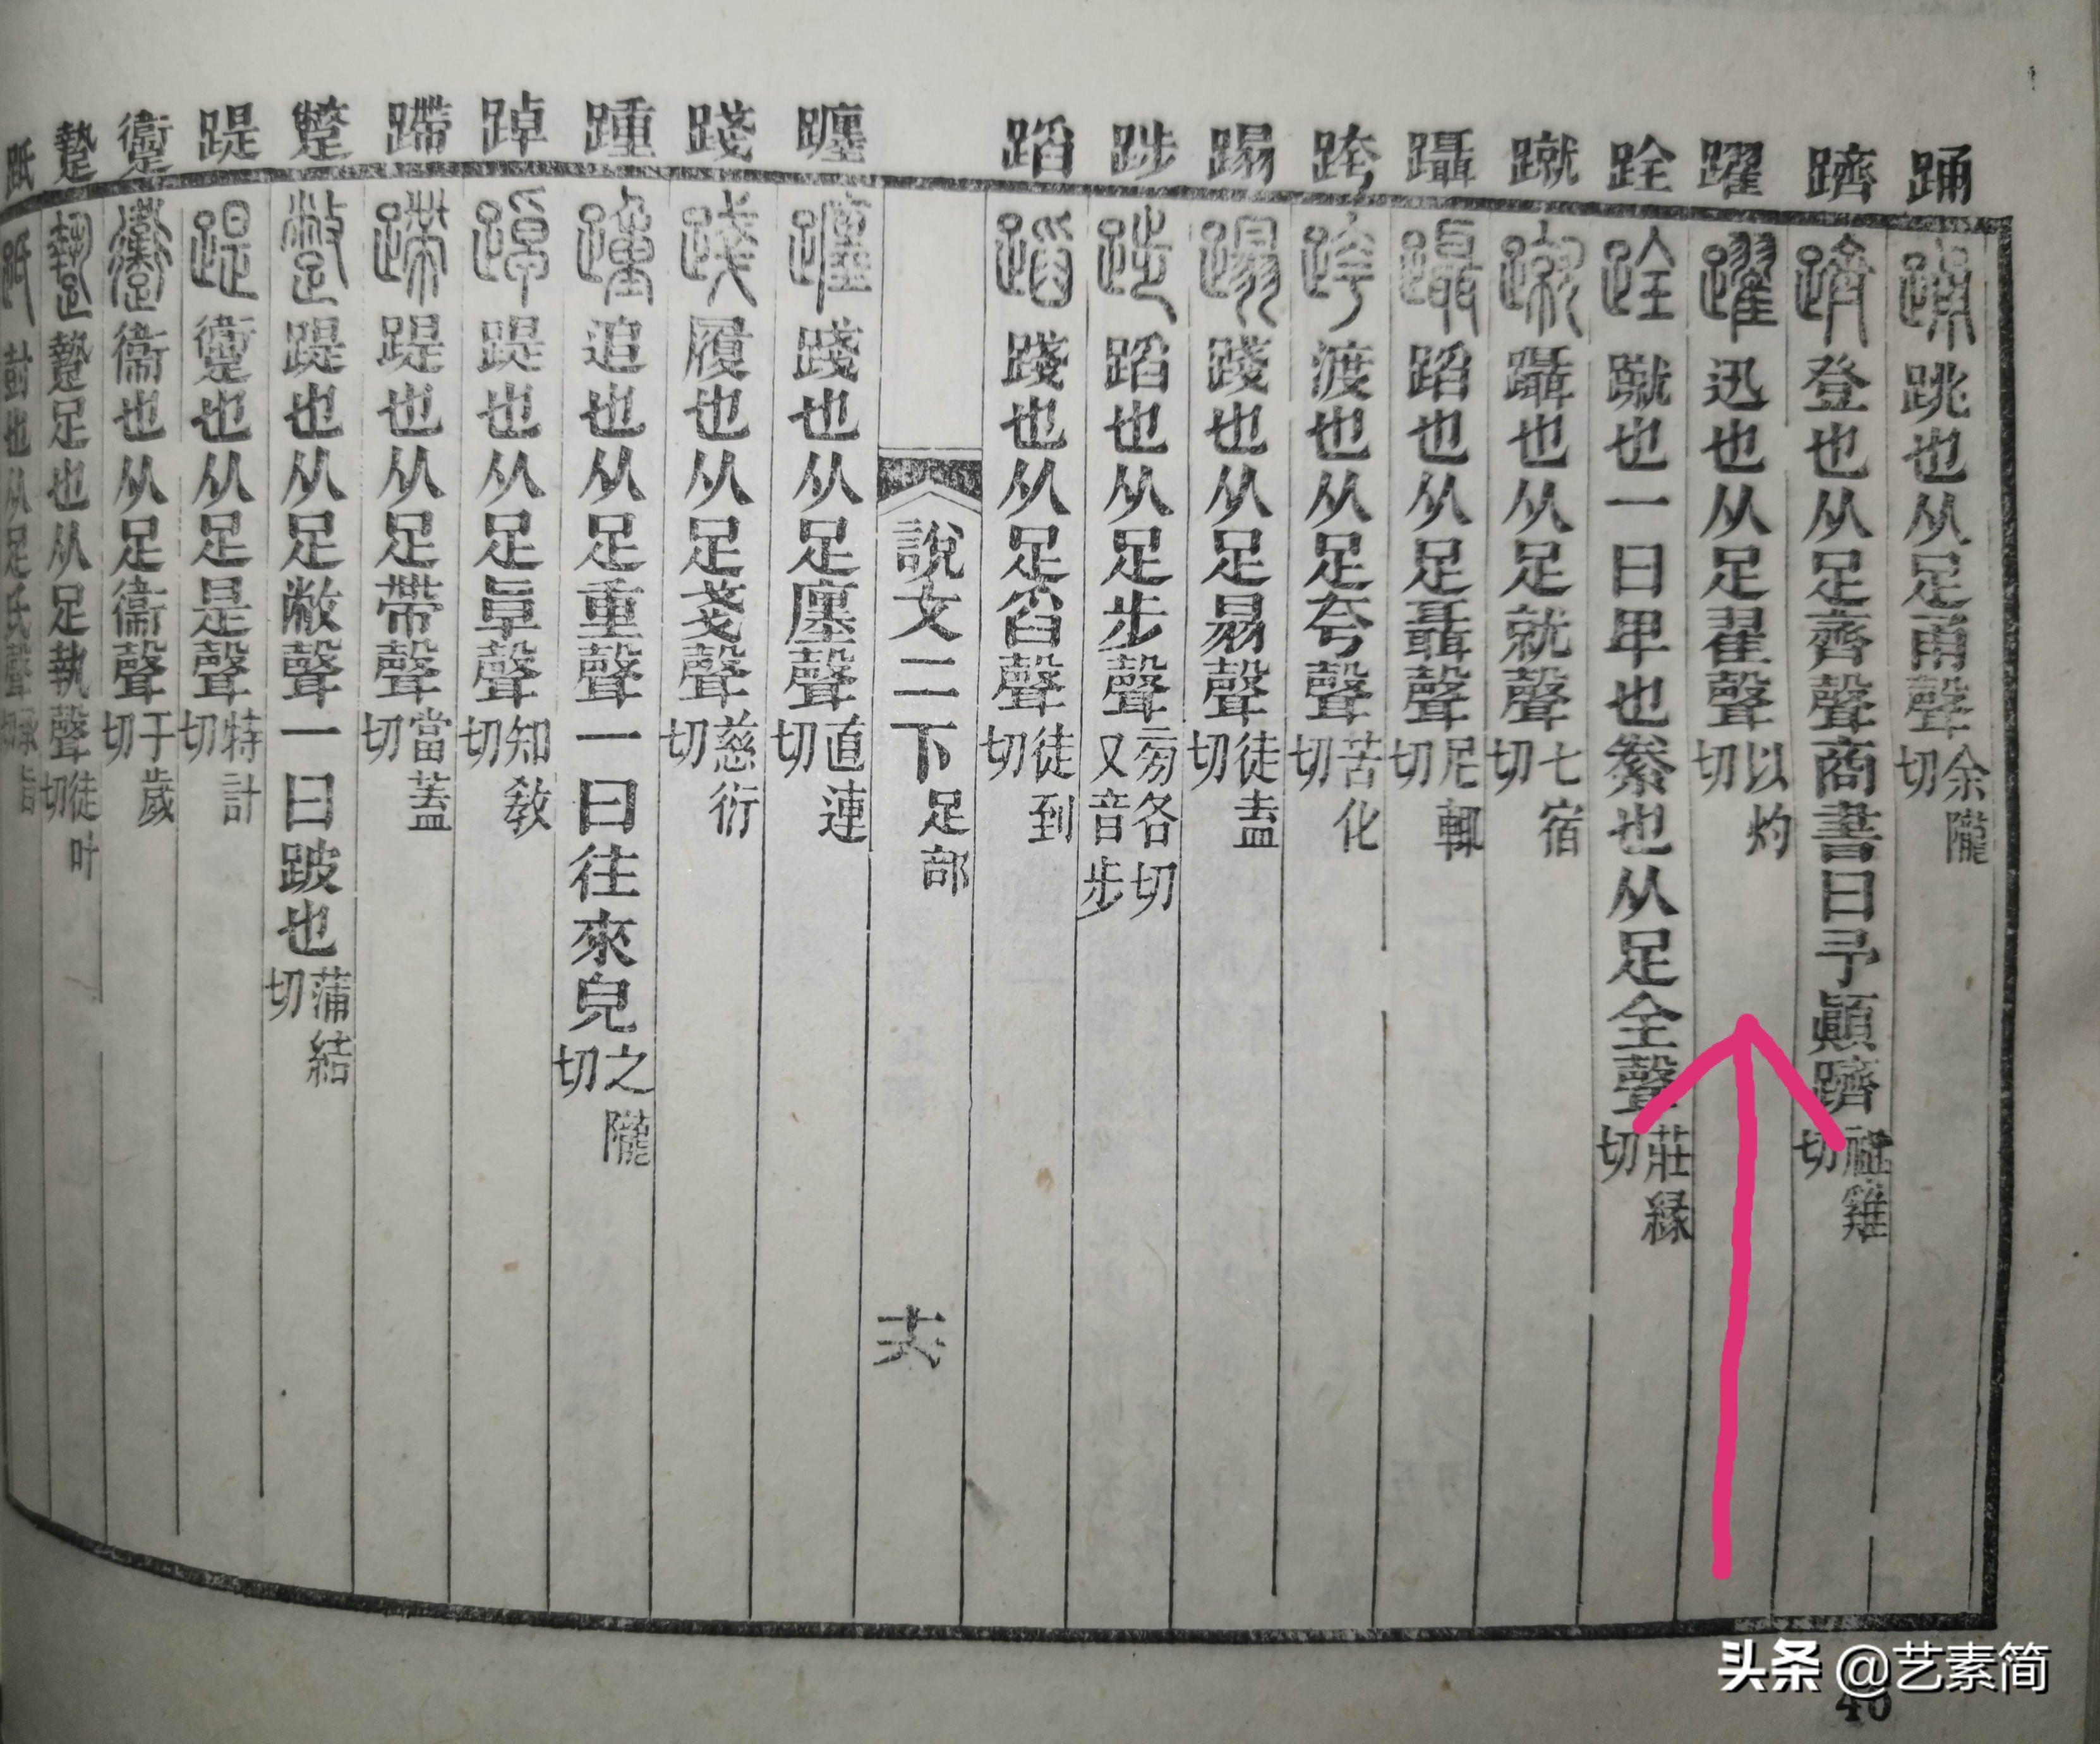 踊 跳也从足甬聲余隴切
躋 登也从足齊聲商書曰予顚躋祖雞切
躍 迅也从足翟聲以灼切
跧 蹴也一曰卑也絭也从足全聲莊緣切
蹴 躡也从足就聲七宿切
躡 蹈也从足聶聲尼輒切
跨 渡也从足夸聲苦化切
蹋 踐也从足𦐇聲徒盍切
踄 蹈也从足步聲㫄各切又音步
蹈 踐也从足舀聲徒到切
說文二下 足部 十六
躔 踐也从足廛聲直連切
踐 履也从足戔聲慈衍切
踵 追也从足重聲一曰往來皃之隴切
踔 踶也从足卓聲知敎切
蹛 踶也从足帶聲當蓋切
蹩 踶也从足敝聲一曰跛也蒲結切
踶 躗也从足是聲特計切
躗 衞也从足衞聲于歲切
蹔 蹔足也从足執聲徒叶切
䟡 尌也从足氏聲承旨切
头条 @艺素简
46